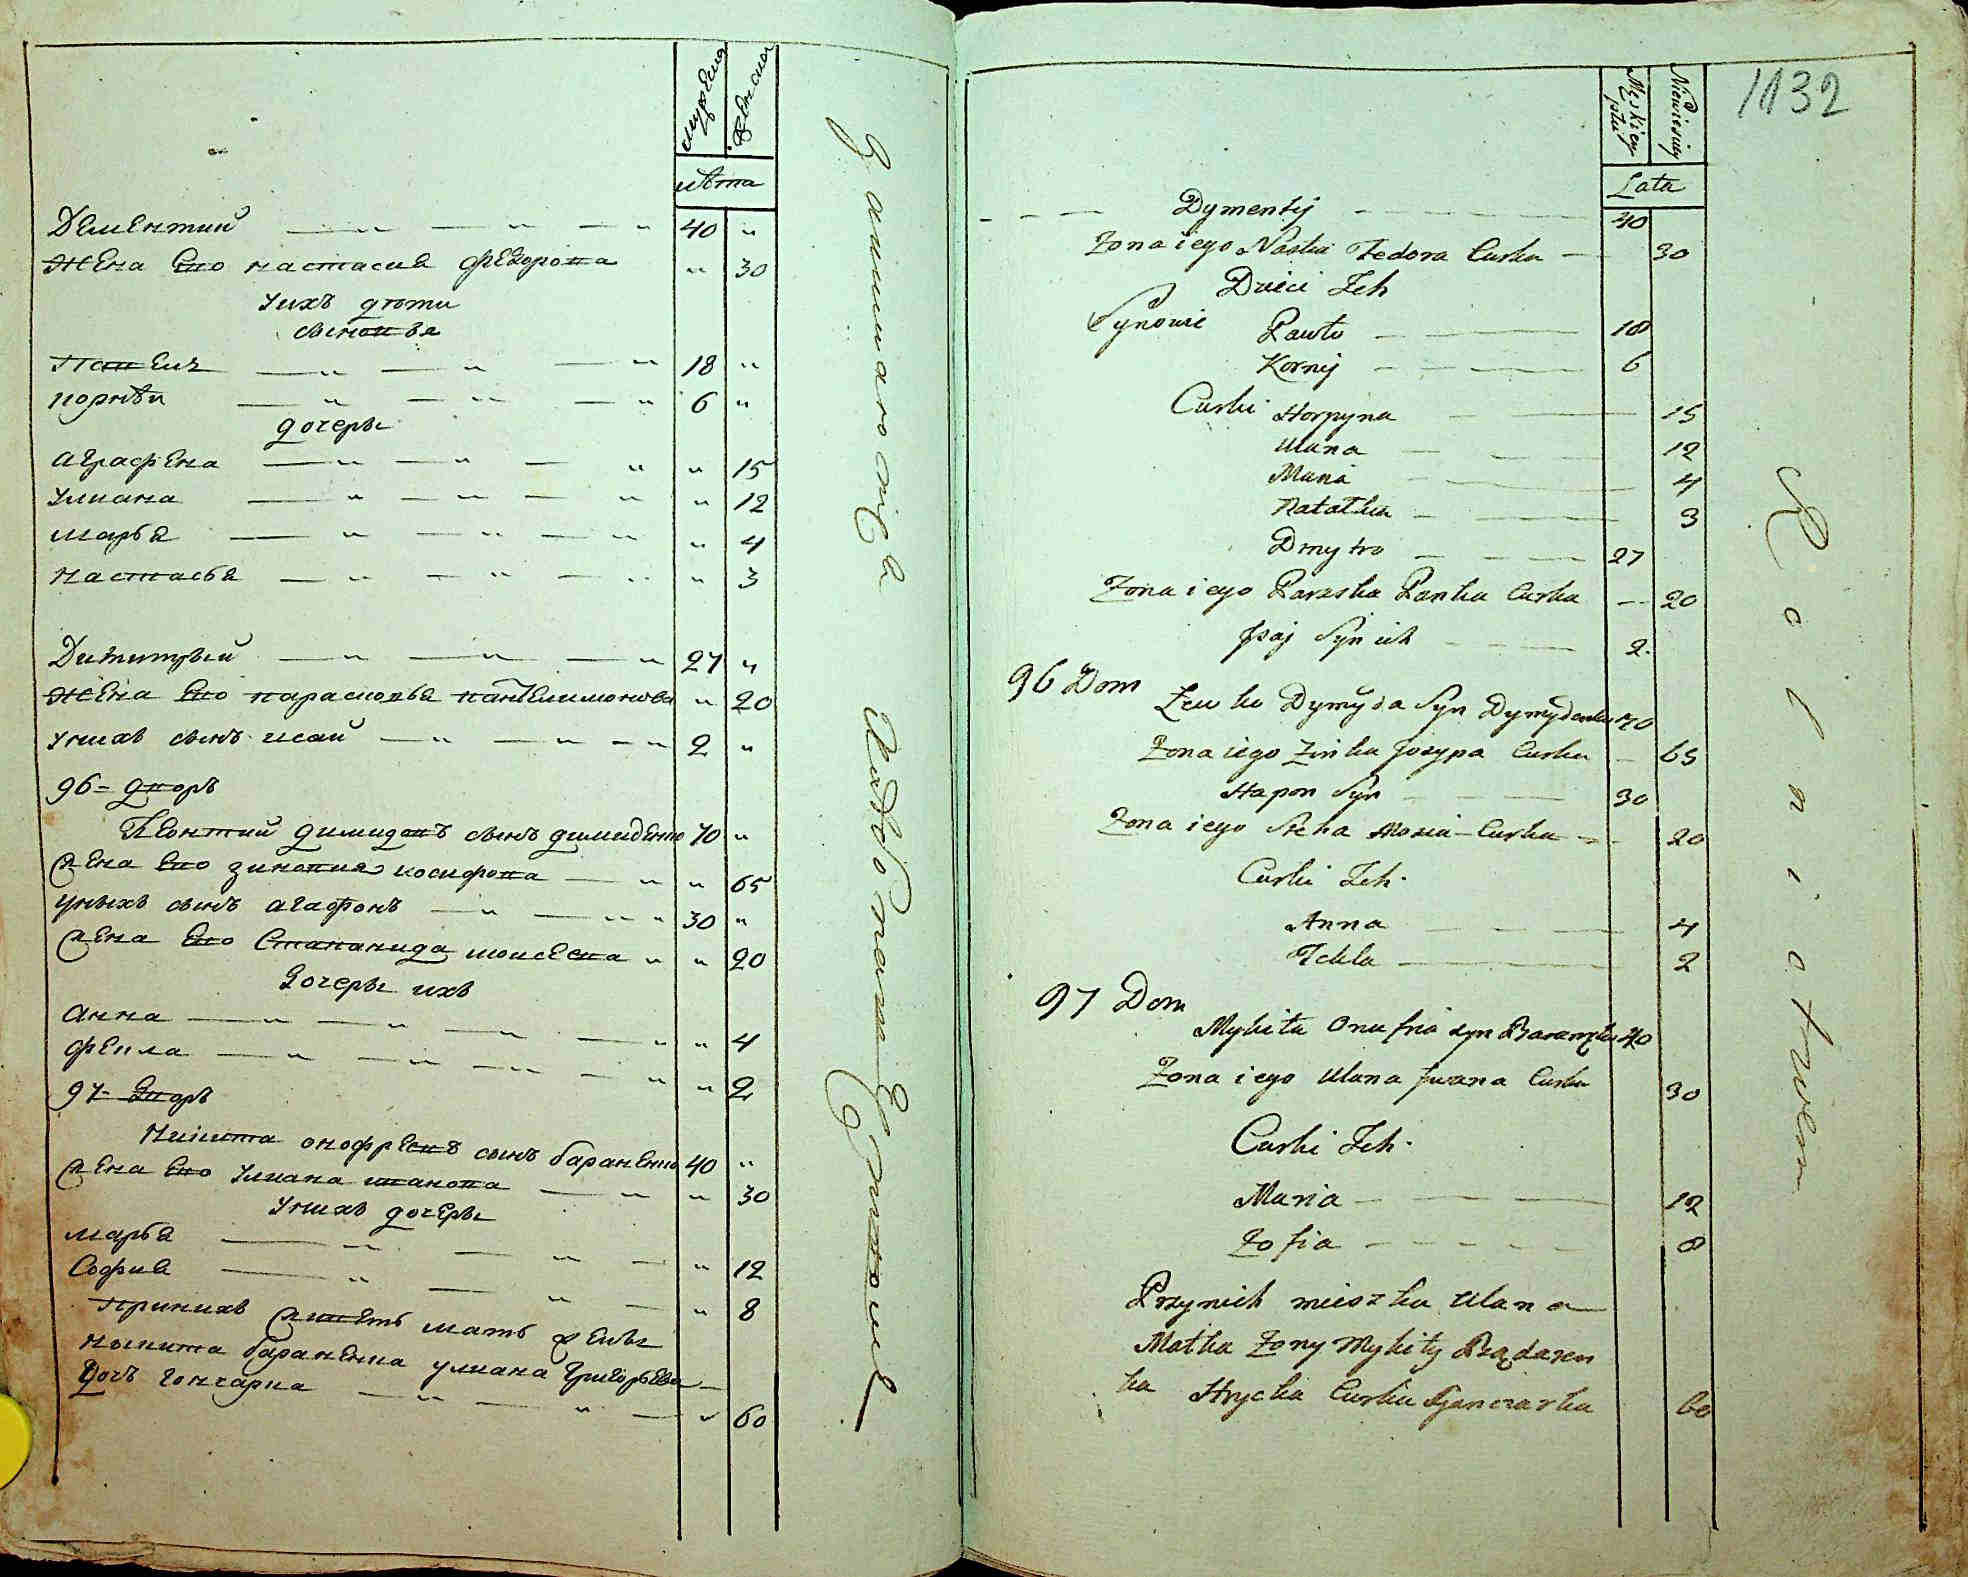 мужеска
женска
лѣта
Дементий 40 "
жена ево настасия федорова " 30
у ихъ дѣти
сыновья
павелъ 18 "
корнѣй 6 "
дочеры
аграфена " 15
улиана " 12
марья " 4
настасья " 3
Димитрый 27 "
жена ево парасковья пантелимонова " 20
у нихъ сынъ исай 2 "
96 = дворъ
Леонтий димидовъ сынъ димиденко 70 "
жена ево зиновия иосифова " 65
у ныхъ сынъ агафонъ 30 "
жена ево Стапанида моисеева " 20
дочеры ихъ
анна " 4
фекла " 2
97 = дворъ
никита онофреевъ сынъ бараненко 40 "
жена ево улиана иванова " 30
у нихъ дочеры
марья " 12
София " 8
При нихъ живетъ мать жены
никита бараненка улиана григорьева
дочъ гончарка " 60
1132
Męskiey płci
Niewiesciey
Lata
Dymentij 40
Zona iego Nastia Fedora Curka 30
Dzieci Ich
Synowie Pawło 18
Kornij 6
Curki Horpyna 15
Ulana 12
Maria 4
Natałka 3
Dmytro 27
Zona iego Paraska Panka Curka 20
Isaj Syn ich 2
96 Dom
Lewko Dymyda Syn Dymydenko 70
Zona iego Zinka Josypa Curka 65
Hapon Syn 30
Zona iego Steha Mosia Curka 20
Curki Ich
Anna 4
Tekla 2
97 Dom
Mykita Onufria syn Baranenko 40
Zona iego Ulana Iwana Curka 30
Curki Ich
Maria 12
Zofia 8
Przy nich mieszka Ulana
Matka Zony Mykity
ka Hrycka Curka Ganczarka 60
Rolnictwem